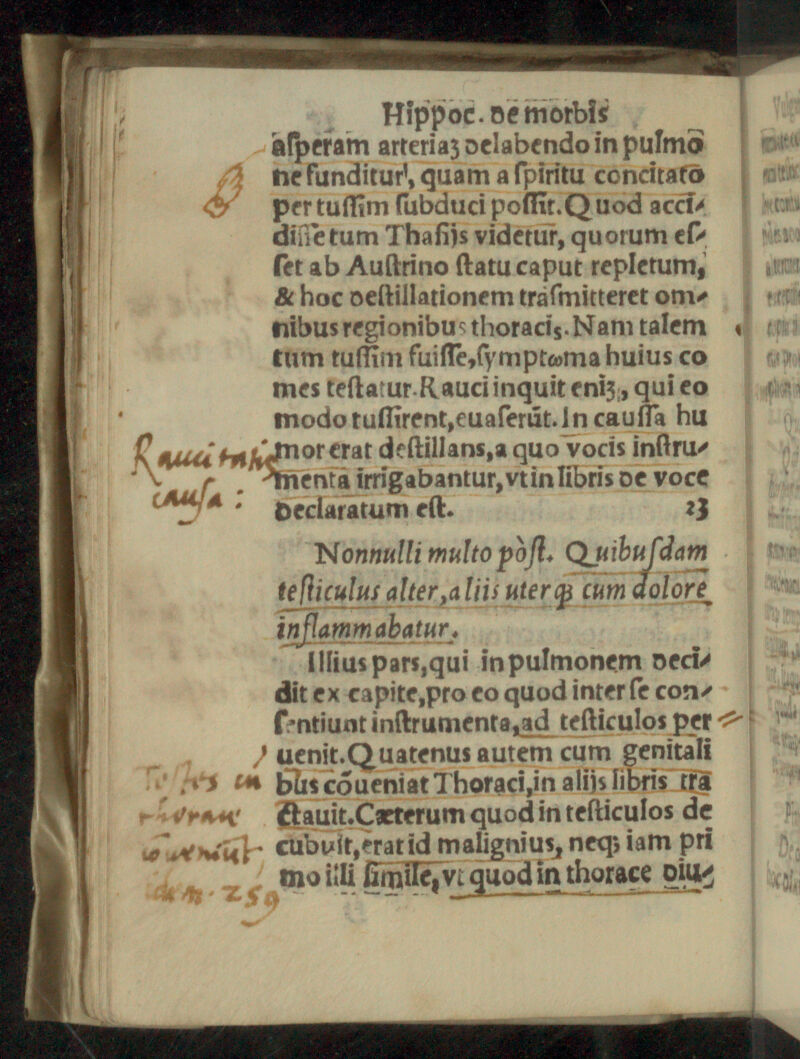 Hippoc. de morbis
asperam arteriaʒ delabendo in pulmõ
ne funditur, quam a spiritu concitato
per tussim subduci possit. Quod acci-
disse tum Thasijs videtur, quorum es-
set ab Austrino statu caput repletum,
& hoc destillationem trãsmitteret om-
nibus regionibus thoracis. Nam talem
tum tussim fuisse, symptωma huius co
mes testatur. Rauci inquit eniʒ, qui eo
modo tussirent, euaserũt. In caussa hu
mor erat destillans, a quo vocis instru-
menta irrigabantur, vt in libris de voce
declaratum est. 23
Rauci
causa:
Nonnulli multo pòst. Quibusdam
testiculus alter, aliis uterqꝫ cum dolore
inflammabatur.
Illius pars, qui in pulmonem deci-
dit ex capite, pro eo quod inter se con-
sentiunt instrumenta, ad testiculos per
uenit. Quatenus autem cum genitali
bus cõueniat Thoraci, in alijs libris tra
ctauit. Cæterum quod in testiculos de
cubuit, erat id malignius, neqꝫ iam pri
mo illi simile, vt quod in thorace diu-
in
259